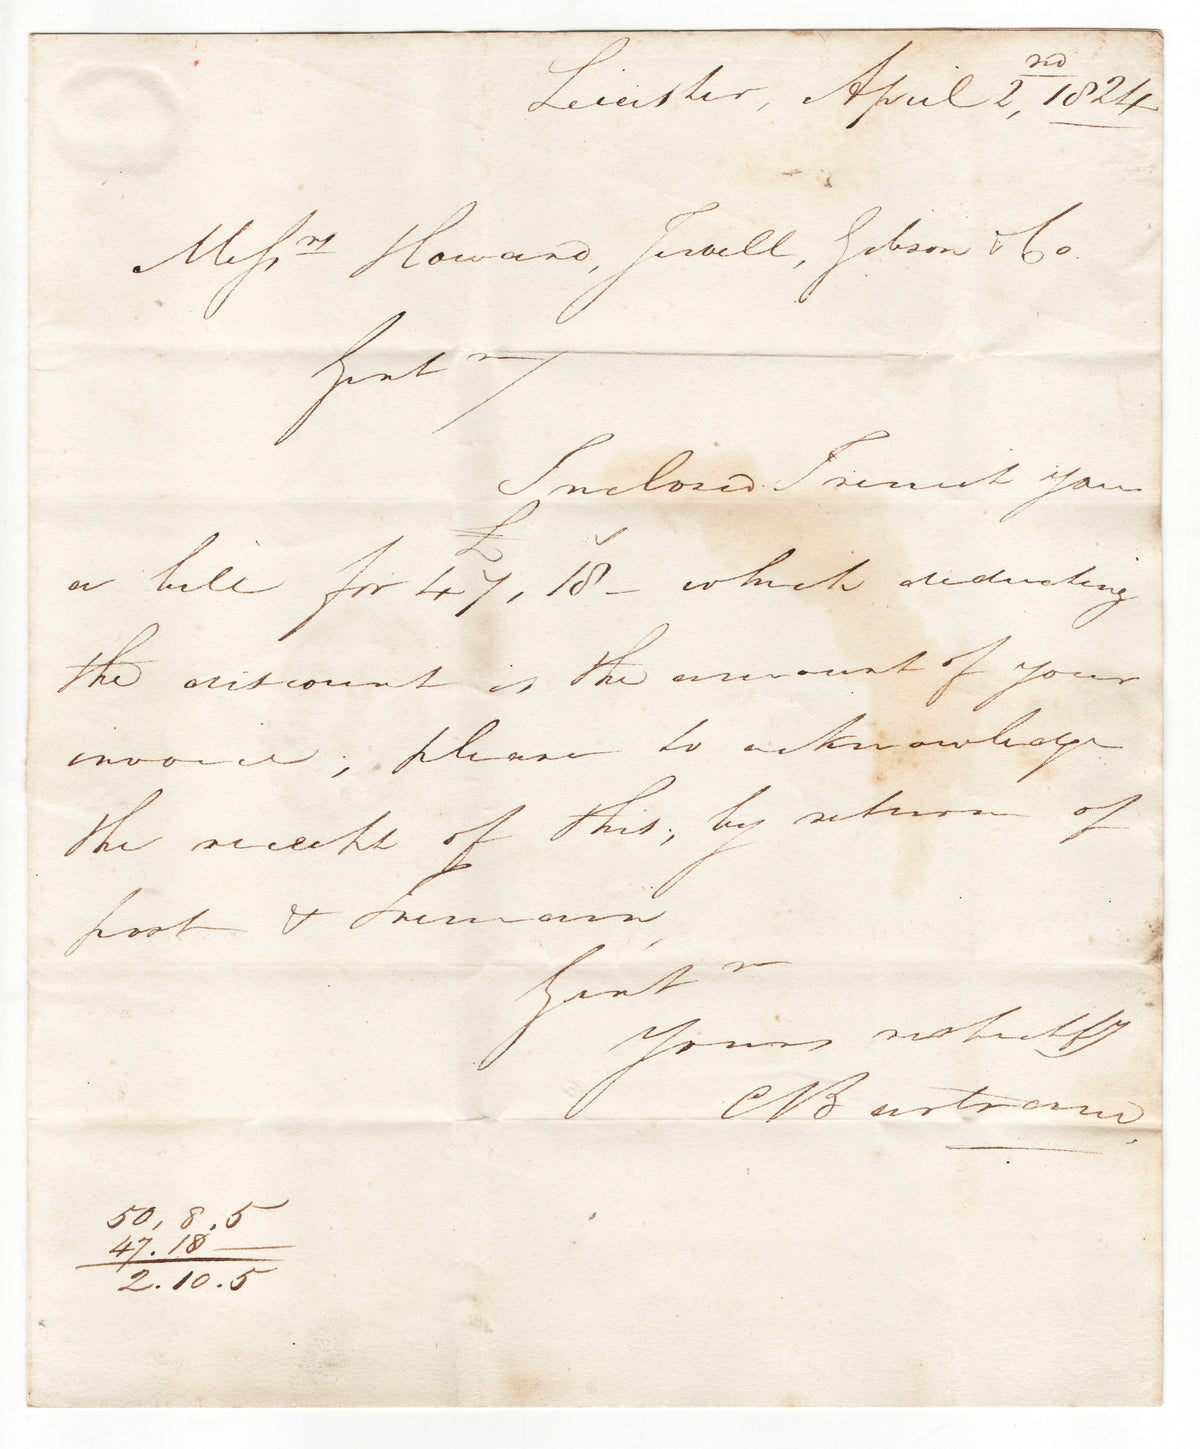 Leicester, April 2nd, 1824
Messrs Howard, Jewell, Gibson & Co.
Gentn
Inclosed I remit you
a bill for £47, 18 – which deducting
the discount is the amount of your
invoice, please to acknowledge
the receipt of this, by return of
post & I remain,
Gentn
Yours respectfy
C Bartram
50, 8. 5
47. 18 —
2. 10. 5